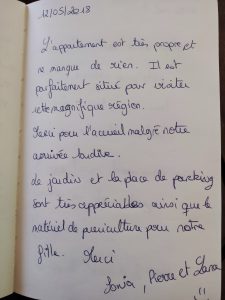 12/05/2018
L'appartement est très propre et
ne manque de rien. Il est
parfaitement situé pour visiter
cette magnifique région.
Merci pour l'accueil malgré notre
arrivée tardive.
Le jardin et la place de parking
sont très appréciables ainsi que le
matériel de puériculture pour notre
fille. Merci
Sonia, Pierre et